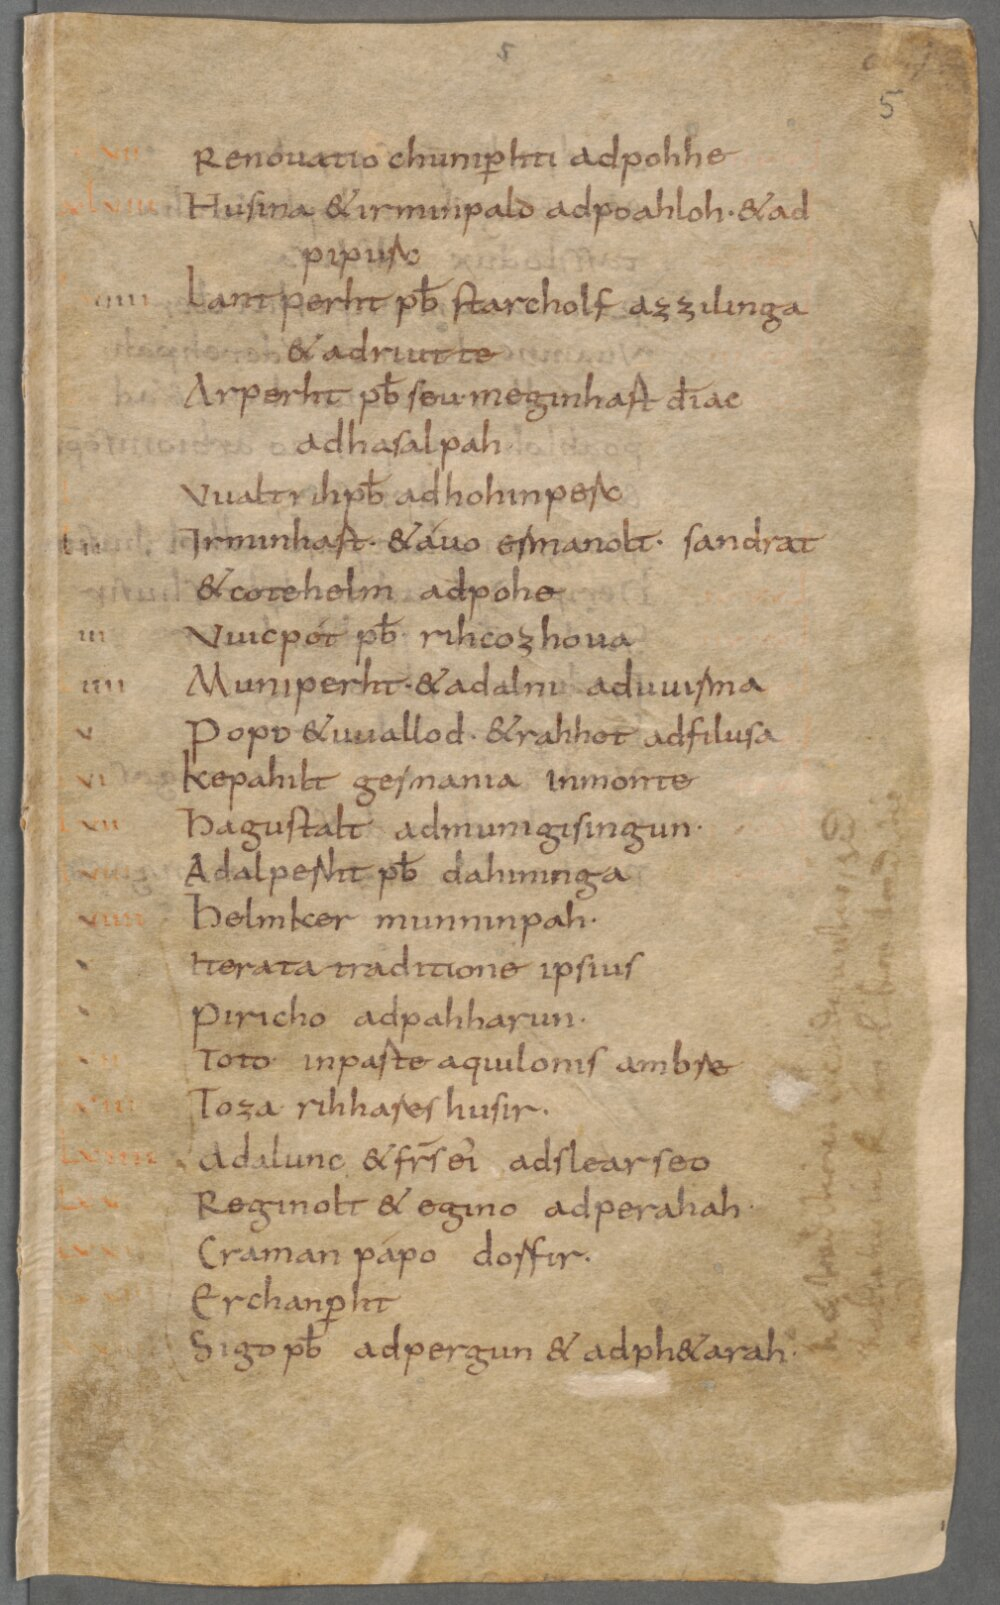 5
5
Renouatio chunip̱hti adpohhe
Husina & irminpald adpoahloh· & ad
pipurc
Lantperht pb̄ starcholf azzilinga
& adriutte
Arperht pb̄ seu meginhart d̄iac
adhasalpah
Vualtrih pb̄ adhohinperc
Irminhart· & áuo ermanolt· sandrat
& cotehelm adpohe
iii Vuicpót pb̄ rihcozhoua
iiii Muniperht· & adalni aduuirma
v Popo & uuallod· & rahhot adfilusa
vi kepahilt germania inmonte
vii hagustalt admunigisingun·
viii Adalperht pb̄ dahininga
viiii helmker munninpah·
Iterata traditione ipsius
piricho adpahharun·
Toto inparte aquilonis ambre
Toza rihhareshusir·
Adalunc & fr̄s ei adslearseo
Reginolt & egino adperahah·
Craman pápo dorfir·
Erchanp̱ht
Sigo pb̄ adpergun & adph&arah·